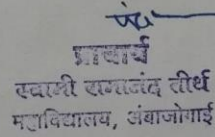 प्राचार्य
स्वामी रामानंद तीर्थ
महाविद्यालय, अंबाजोगाई